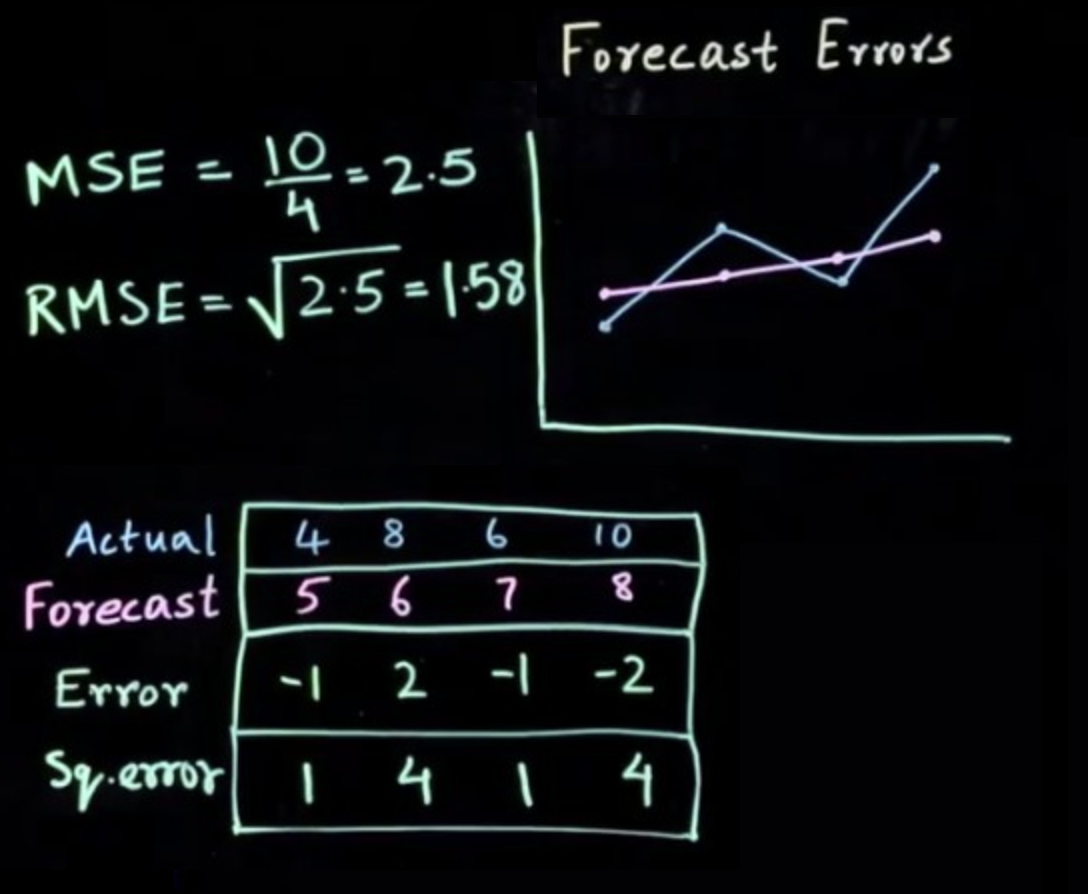 Forecast Errors
MSE = 10/4 = 2.5
RMSE = √2.5 = 1.58
Actual 4 8 6 10
Forecast 5 6 7 8
Error -1 2 -1 -2
Sq.error 1 4 1 4